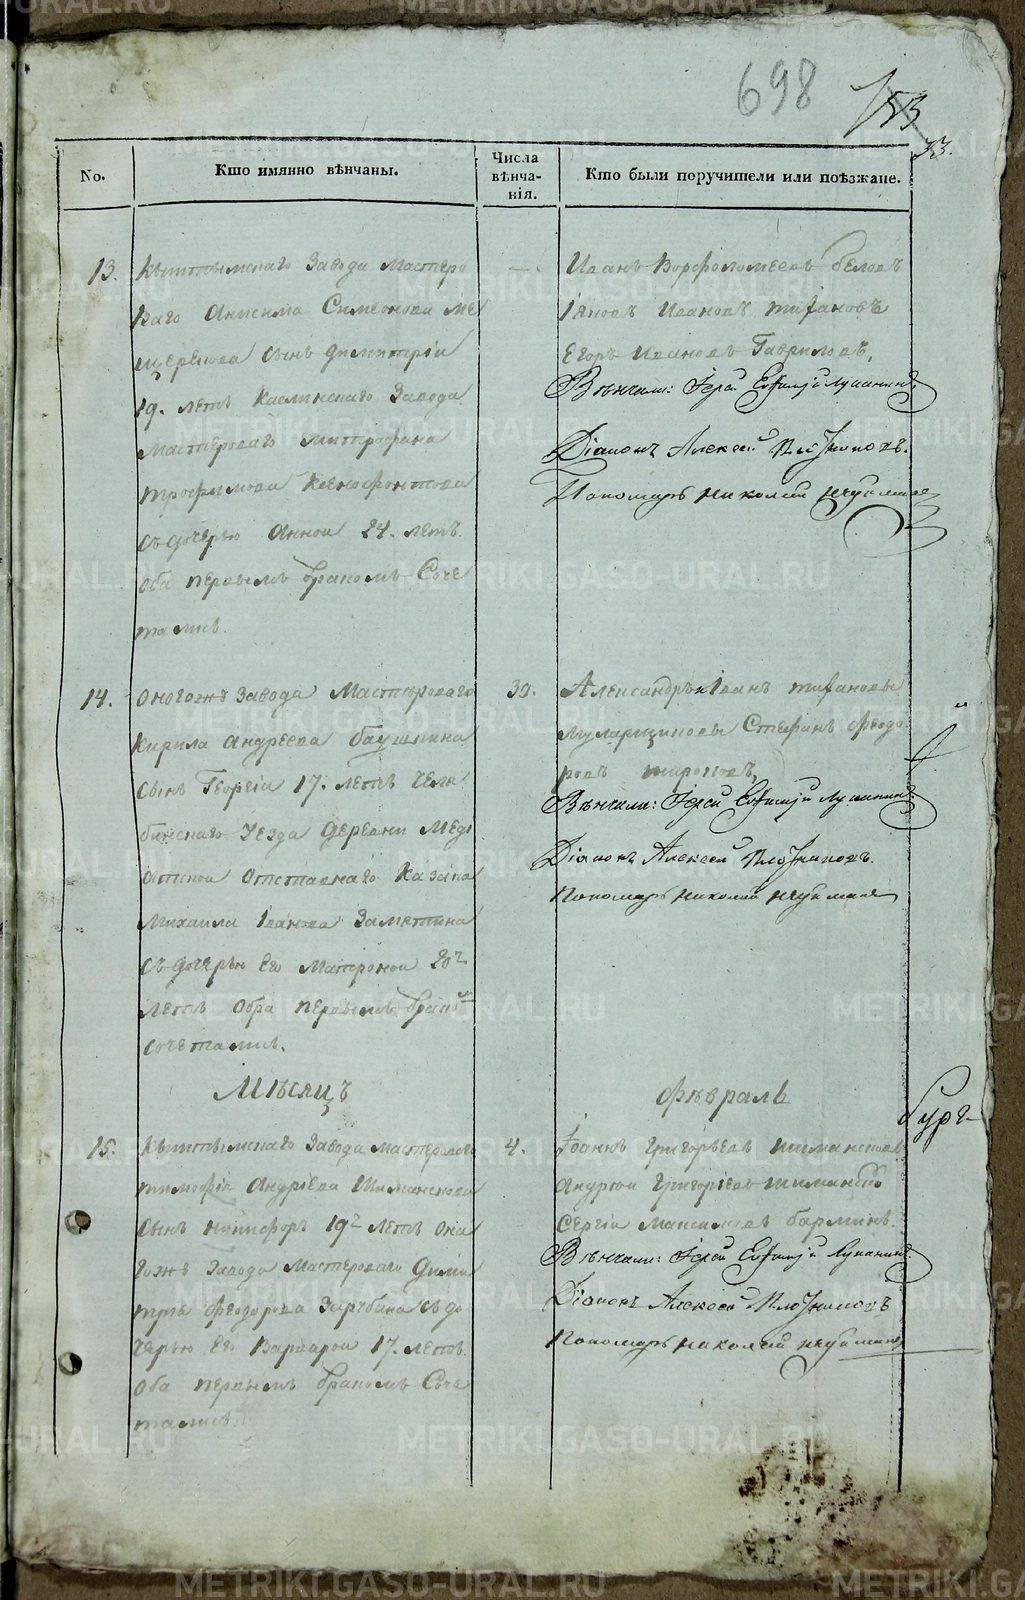 698
153
33.
No.
Кто имянно вѣнчаны.
Числа вѣнчанія.
Кто были поручители или поѣзжане.
13.
Кыштымскаго Завода Мастеро
ваго Анисима Симеонова Ме
щерекова сынъ Димитрiи
19. летъ Каслинскаго Завода
Мастероваго Митрофана
Трофимова Ксенофонтова
съ дочерью Анной 24. летъ
оба первымъ бракомъ Соче
тались.
Иванъ Ворфоломеевъ беловъ
Iяковъ Ивановъ
Егоръ Ивановъ Гавриловъ,
Вѣнчали: Iерей Евфимiй Лупанинъ
Дiаконъ Алексей Плотниковъ.
Пономарь Николай
14.
оногожъ Завода Мастероваго
Кирила Андреева
сынъ Георгiи 17. летъ Челя
бинскаго Уезда Деревни Медi
атской Отставнаго Казака
Михаила Iванова Заметина
съ дочерью Его Матроной 20ти
летъ Оба первымъ бракомъ
сочетались.
30.
Александръ и Iванъ
Стефанъ Феодо
ровъ
Вѣнчали: Iерей Евфимiй Лупанинъ
Дiаконъ Алексей Плотниковъ.
Пономарь Николай
Мѣсяцъ
Февраль
бург-
15.
Кыштымскаго Завода мастероваго
тимофѣя Андрiева Шиманскова
сынъ Никифоръ 19ти летъ Она
гожъ Завода Мастероваго Дими
трiя Феодорова Зарубина съ до
черью Его Варварой 17. летъ.
Оба первымъ бракомъ Соче
тались.
4.
Iоаннъ Григорьевъ шимансковъ
Андреи Григорiевъ
Сергiи Максимовъ барминъ.
Вѣнчали: Iерей Евфимiй Лупанинъ
Дiаконъ Алексей Плотниковъ
Пономарь Николай